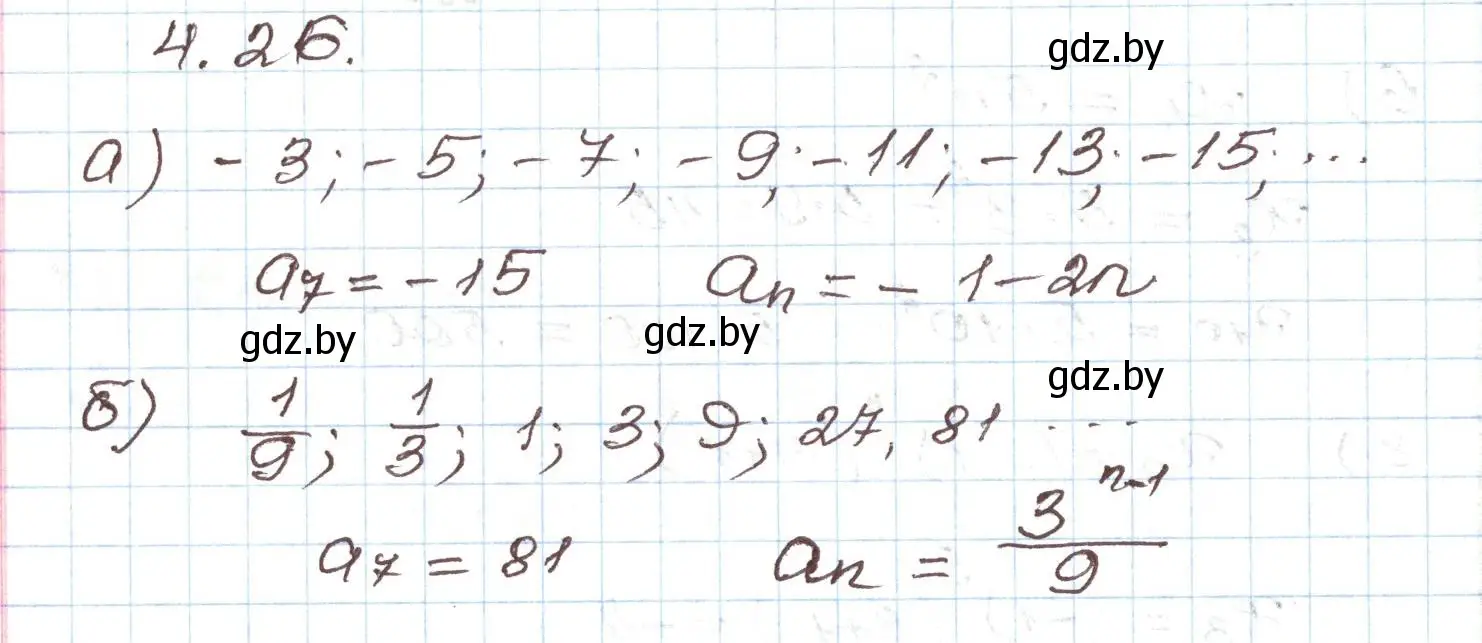 4.26.
gdz.by
а) - 3; - 5; - 7; - 9; - 11; - 13; - 15; ...
a₇ = - 15 aₙ = - 1 - 2n
gdz.by gdz.by
gdz.by
б) 1/9; 1/3; 1; 3; 9; 27, 81 ...
a₇ = 81 aₙ = 3ⁿ⁻¹/9